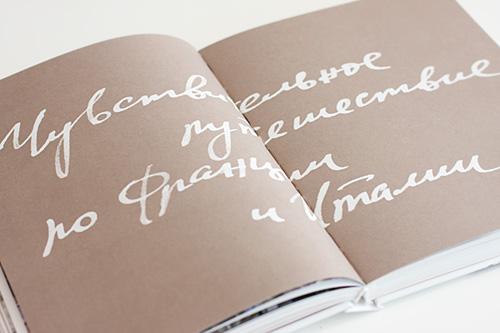 Чувствительное
путешествие
по Франции
и Италии